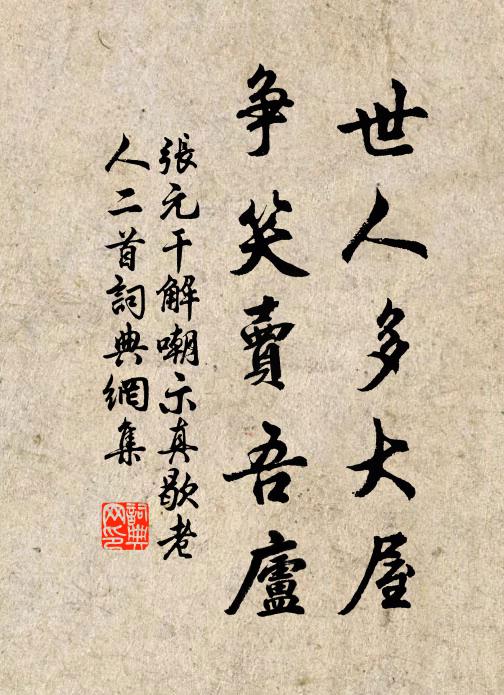 世人多大屋
争笑賣吾廬
張元干解嘲示真歇老
人二首詞典網集
詞典
网印